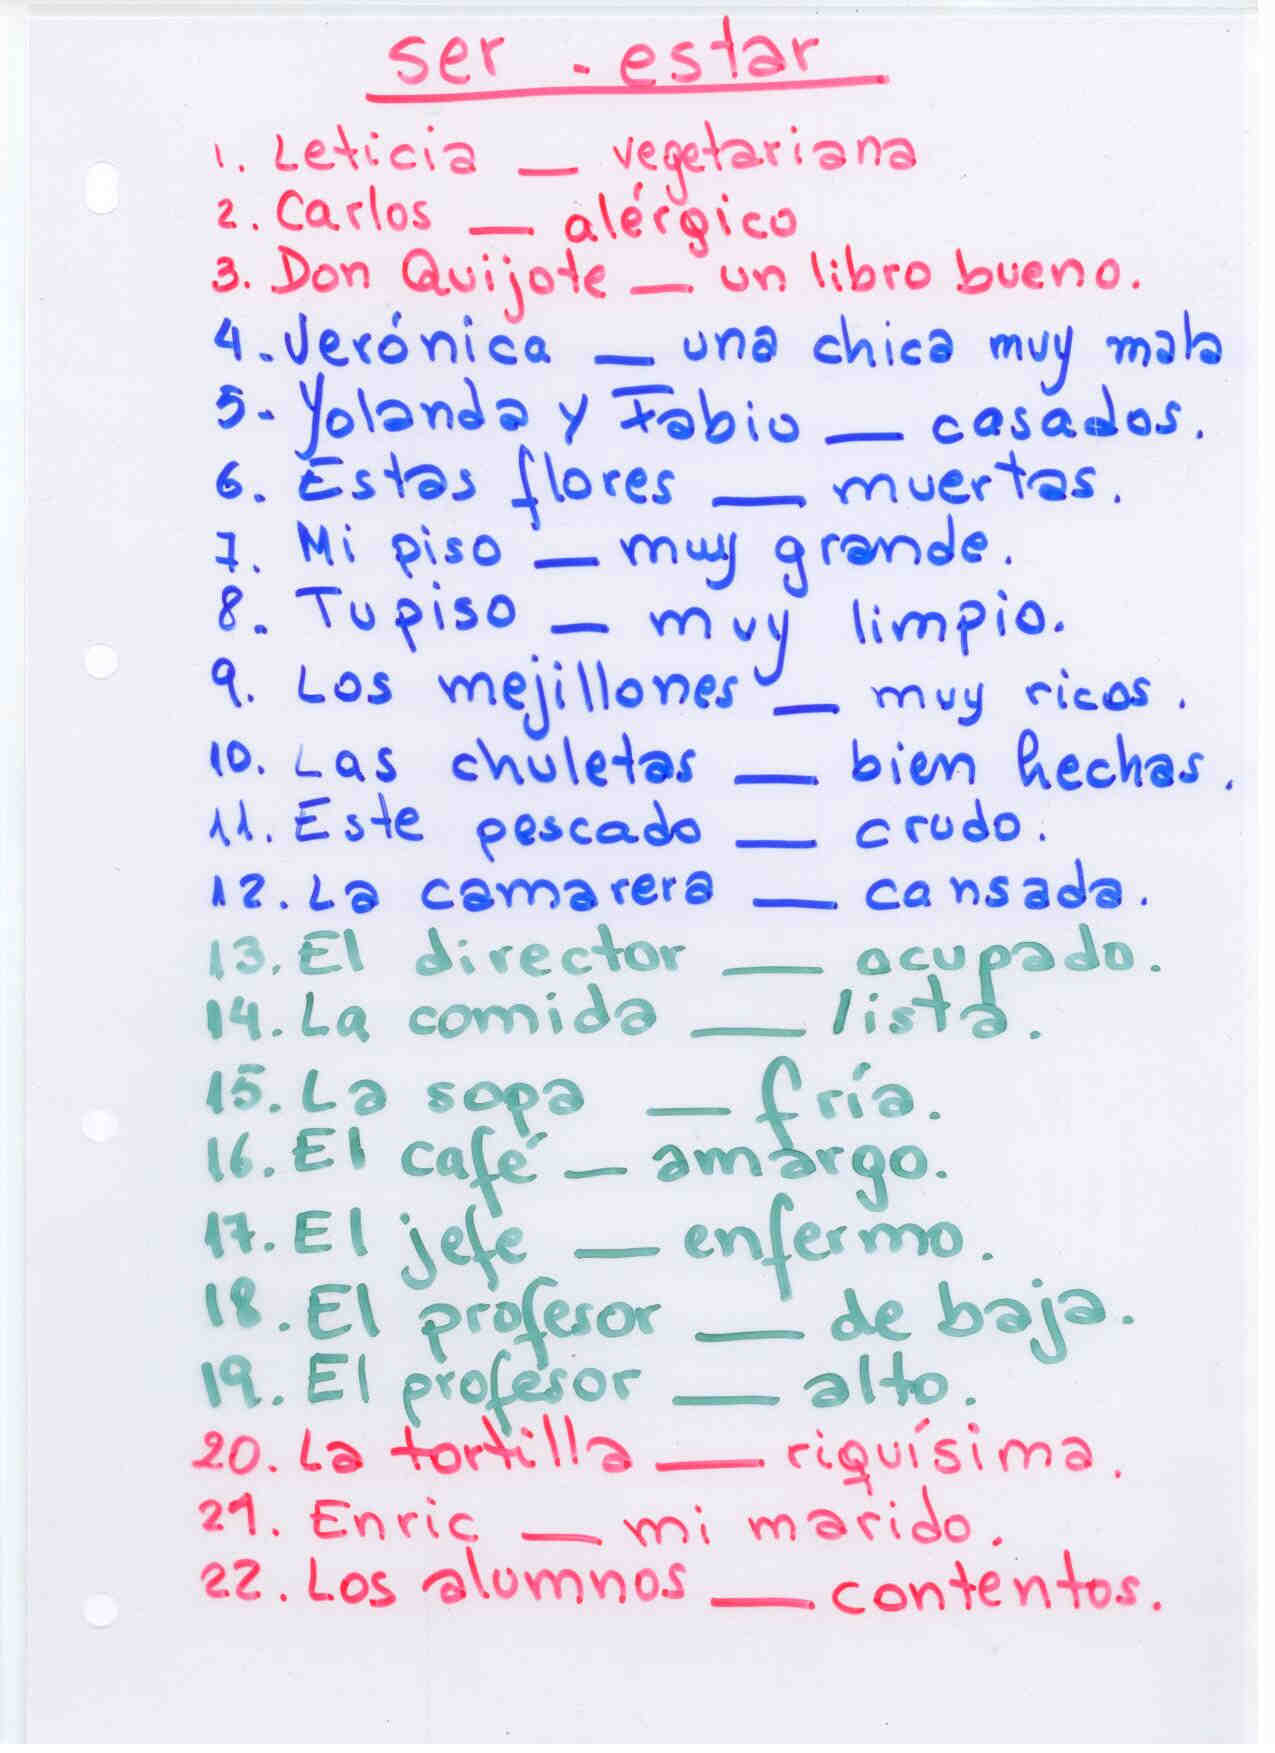 ser - estar
1. Leticia __ vegetariana
2. Carlos __ alérgico
3. Don Quijote __ un libro bueno.
4. Verónica __ una chica muy mala
5- Yolanda y Fabio __ casados.
6. Estas flores __ muertas.
7. Mi piso __ muy grande.
8. Tu piso __ muy limpio.
9. Los mejillones __ muy ricos.
10. Las chuletas __ bien hechas.
11. Este pescado __ crudo.
12. La camarera __ cansada.
13. El director __ ocupado.
14. La comida __ lista.
15. La sopa __ fría.
16. El café __ amargo.
17. El jefe __ enfermo.
18. El profesor __ de baja.
19. El profesor __ alto.
20. La tortilla __ riquísima.
21. Enric __ mi marido.
22. Los alumnos __ contentos.